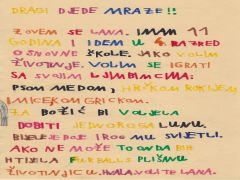 DRAGI DJEDE MRAZE!!
ZOVEM SE LANA. IMAM 11
GODINA I IDEM U 4 RAZRED
OSNOVNE ŠKOLE. JAKO VOLIM
ŽIVOTINJE. VOLIM SE IGRATI
SA SVOJIM LJUBIMCIMA:
PSOM MEDOM, ROKIJEM
I GRICKOM.
ZA BOŽIĆ BI VOLJELA
DOBITI JEDNOROGA LUNU.
BIJELE BOJE I ROG MU SVIJETLI.
AKO NE MOŽE TO ONDA BIH
HTJELA FURBALLS PLIŠNU
ŽIVOTINJICU. HVALA, VOLI TE LANA.